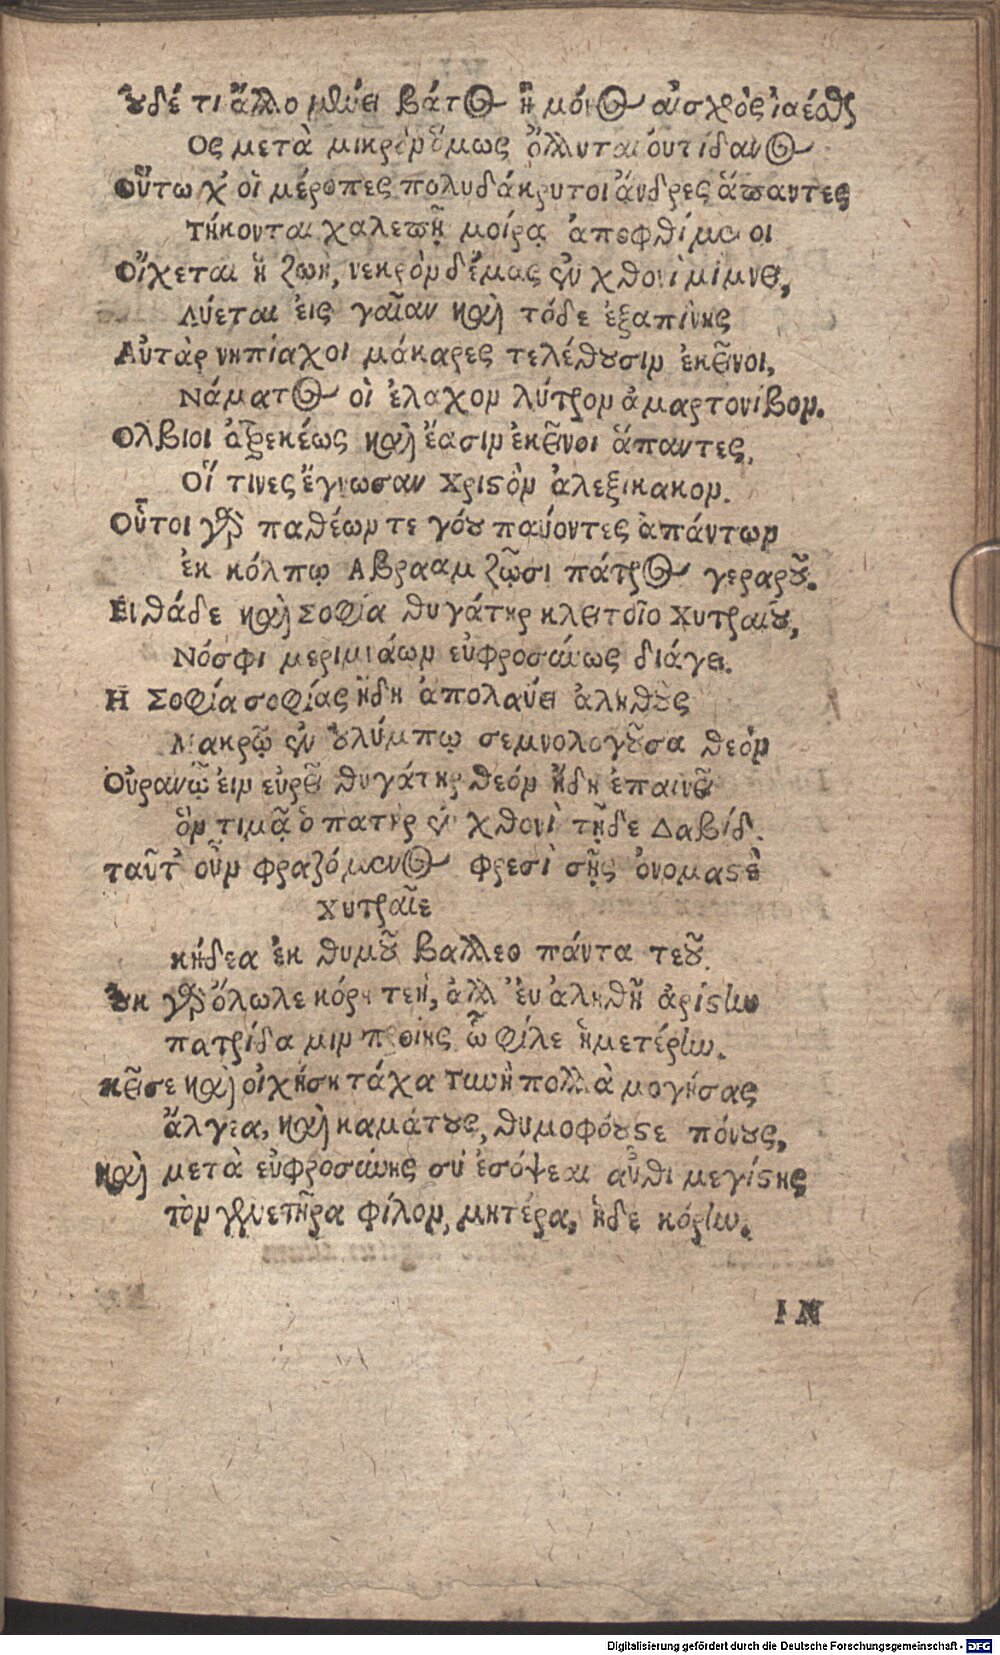 Οὐδέ τι ἄλλο μθύει βάτος ἢ μόνος αἰσχρὸς
Ος μετὰ μικρὸν ὅμως ὄλλυται οὐτιδανός
Οὕτω χ' οἱ μέροπες πολυδάκρυτοι ἄνδρες ἅπαντες
Τήκονται χαλεπῇ μοίρᾳ ἀποφθίμενοι
Οἴχεται ἡ ζωὴ, νεκρὸν δέμας ἐν χθονὶ μίμνει,
Λύεται εἰς γαῖαν καὶ τόδε ἐξαπίνης
Αὐτὰρ νηπίαχοι μάκαρες τελέθουσιν ἐκεῖνοι,
Νάματος οἳ ἔλαχον λύτρον ἁμαρτονίβον.
Ολβιοι ἀτρεκέως καὶ ἔασιν ἐκεῖνοι ἅπαντες,
Οἵ τινες ἔγνωσαν Χριστὸν ἀλεξικακον.
Οὗτοι γὰρ παθέων τε γόου παύοντες ἁπάντων
ἐκ κόλπῳ Αβρααμ ζῶσι πάτρος γεραροῦ.
Ενθάδε καὶ Σοφία θυγάτηρ κλειτοῖο Χυτραίου,
Νόσφι μεριμνάων εὐφροσύνως διάγει.
Ἡ Σοφία σοφίας ἤδη ἀπολαύει ἀληθοῦς
Μακρῷ ἐν οὐλύμπῳ σεμνολογοῦσα θεόν
Οὐρανῷ εἰν εὐρεῖ θυγάτηρ θεόν ἤδη ἐπαινεῖ
ὃν τιμᾷ ὁ πατὴρ ἐν χθονὶ τῇδε Δαβίδ.
ταῦτ' οὖν φραζόμενος φρεσὶ σῇς ὀνομαστὲ
Χυτραῖε
κήδεα ἐκ θυμοῦ βάλλεο πάντα τεοῦ.
Οὐκ γὰρ ὄλωλε κόρη τεὴ, ἀλλ' εὐ ἀληθῆ ἀρίστην
πατρίδα μιν ποθίης ὦ φίλε ἡμετέρην.
κεῖσε καὶ οἰχήσῃ τάχα τωνὴ πολλὰ μογήσας
ἄλγεα, καὶ καμάτους, θυμοφθόους τε πόνους,
καὶ μετὰ εὐφροσύνης σύ ἐσόψεαι αὖθι μεγίστης
τὸν γενετῆρα φίλον, μητέρα, ἠδε κόρην.
IN
Digitalisierung gefördert durch die Deutsche Forschungsgemeinschaft - DFG